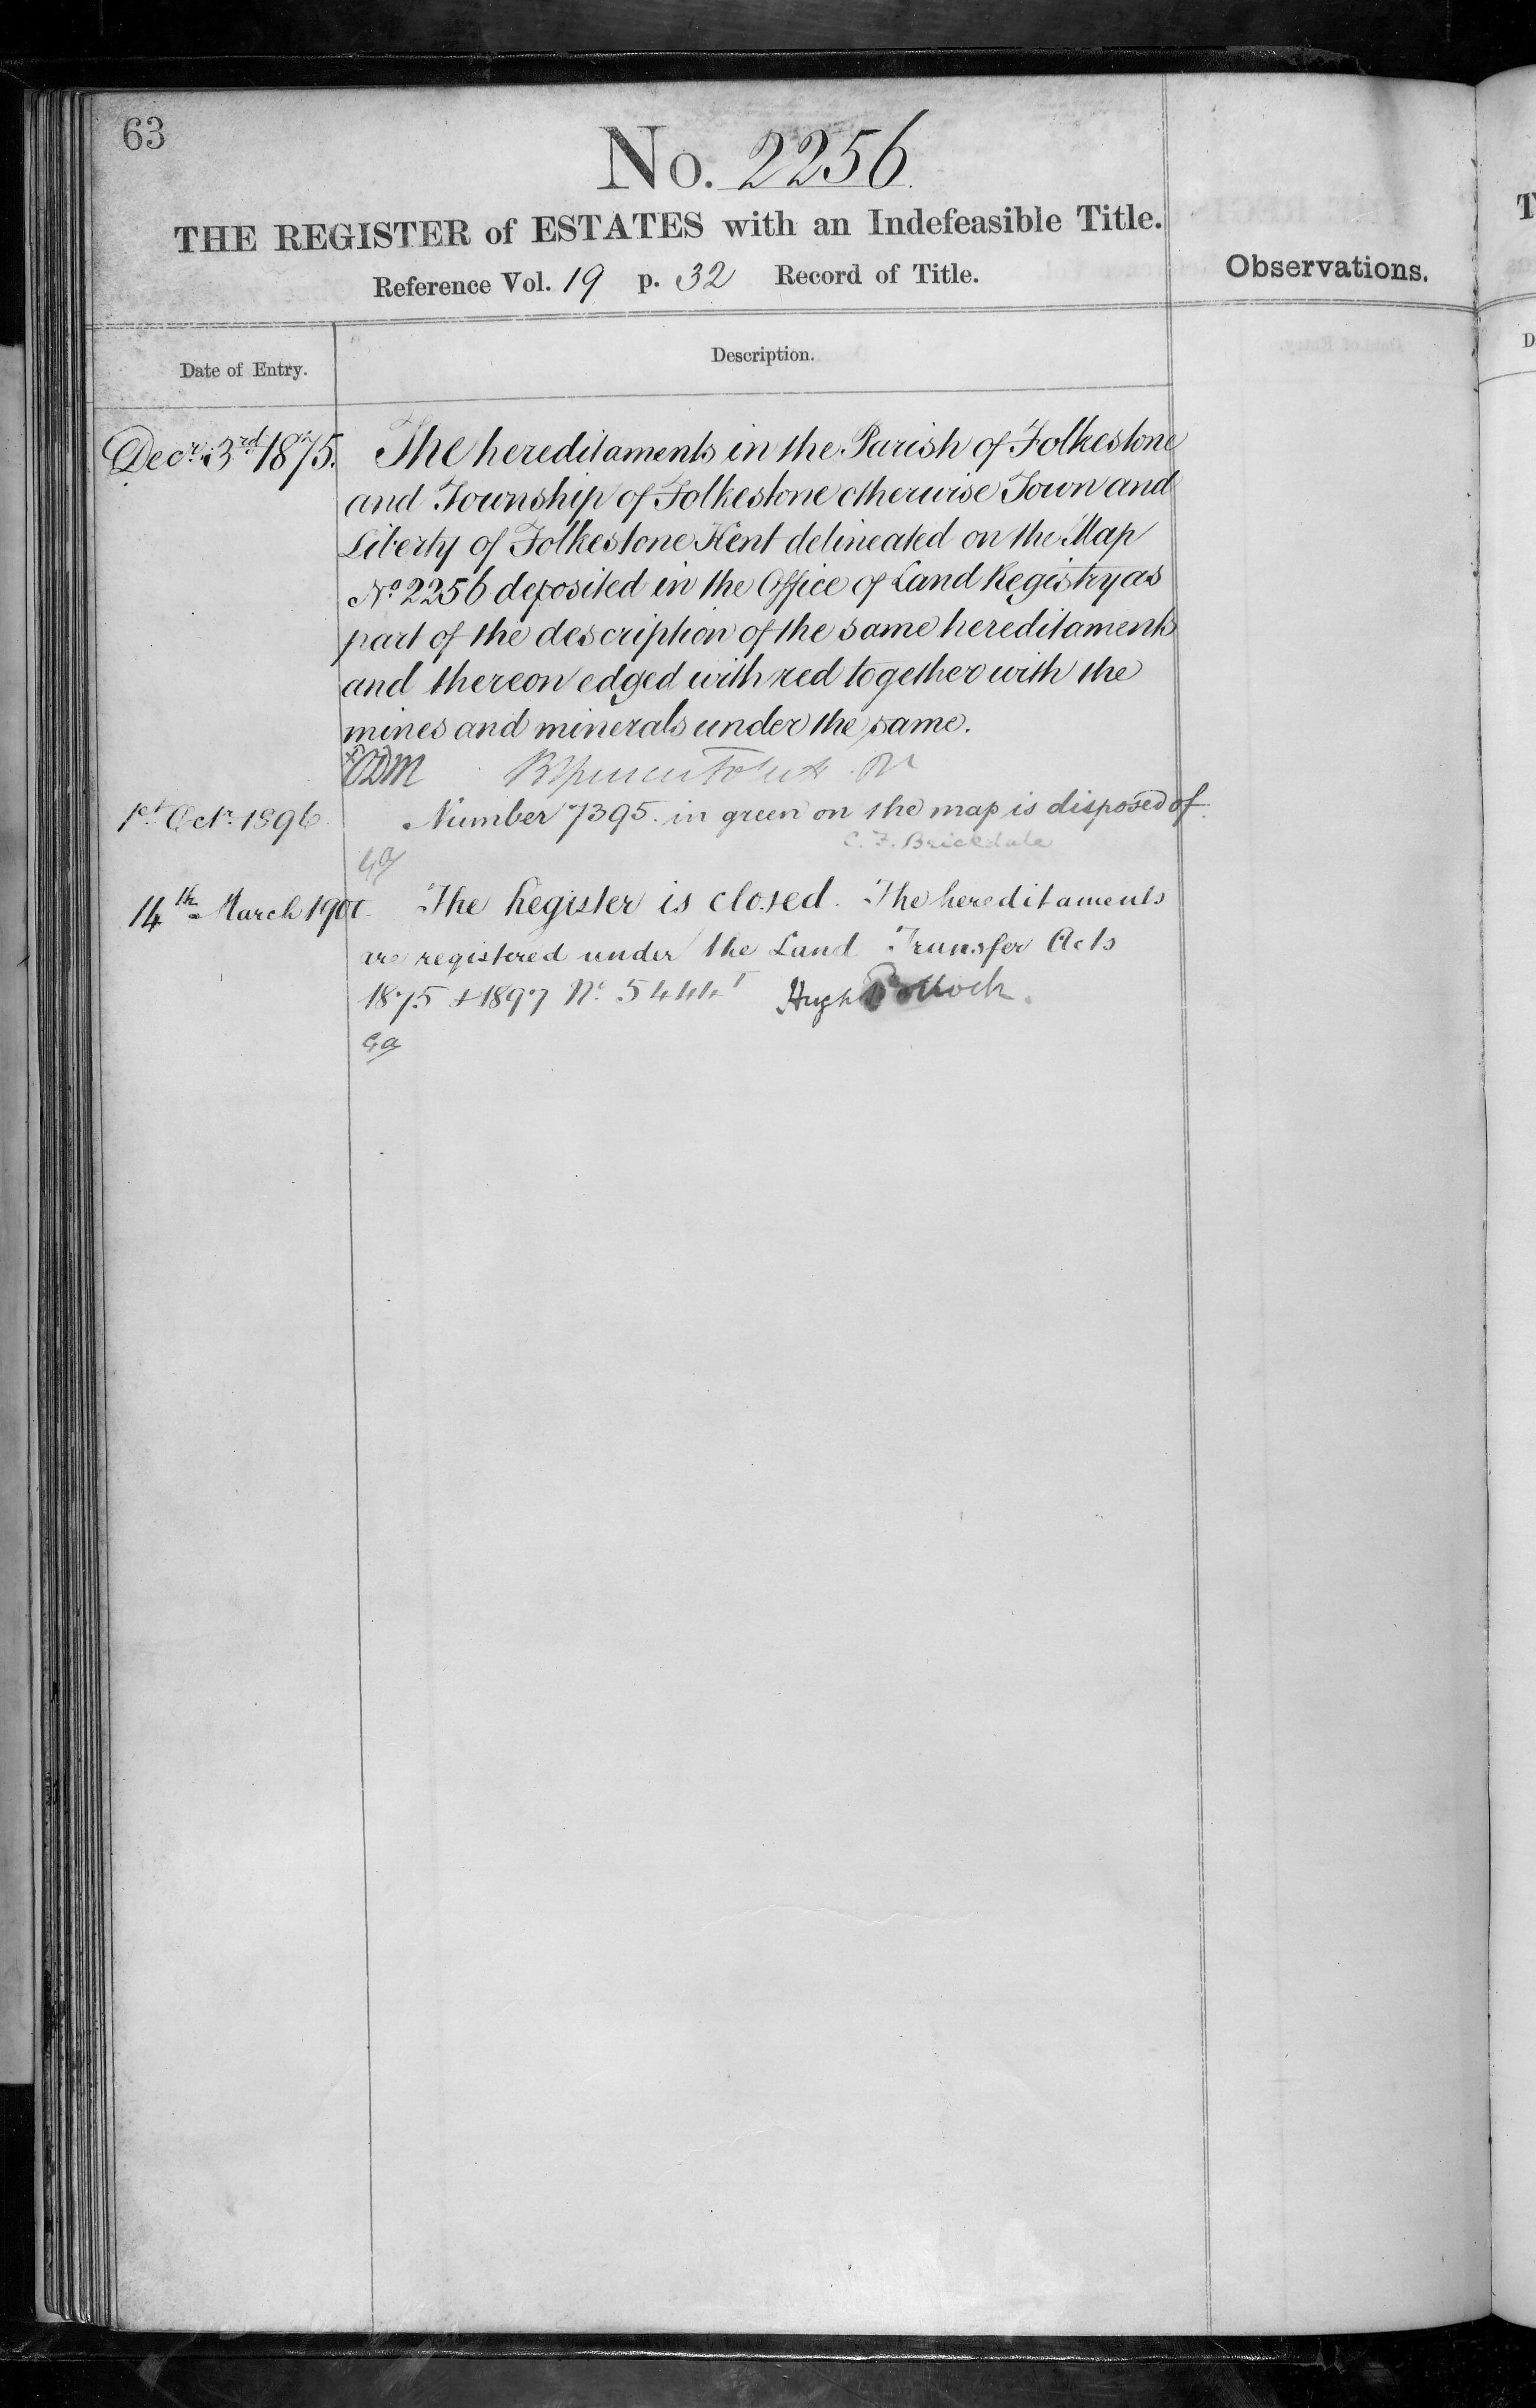 63
No. 2256
THE REGISTER of ESTATES with an Indefeasible Title.
Reference Vol. 19 p. 32 Record of Title.
Observations.
Date of Entry.
Description.
Decr. 3rd 1875. The hereditaments in the Parish of Folkestone
and Township of Folkestone otherwise Town and
Liberty of Folkestone Kent delineated on the Map
No 2256 deposited in the Office of Land Registry as
part of the description of the same hereditaments
and thereon edged with red together with the
mines and minerals under the same.
1st Octr. 1896 Number 7395 in green on the map is disposed of.
C. F. Brickdale
14th March 1900. The Register is closed. The hereditaments
are registered under the Land Transfer Acts
1875 & 1897 No. Hugh Pollock.